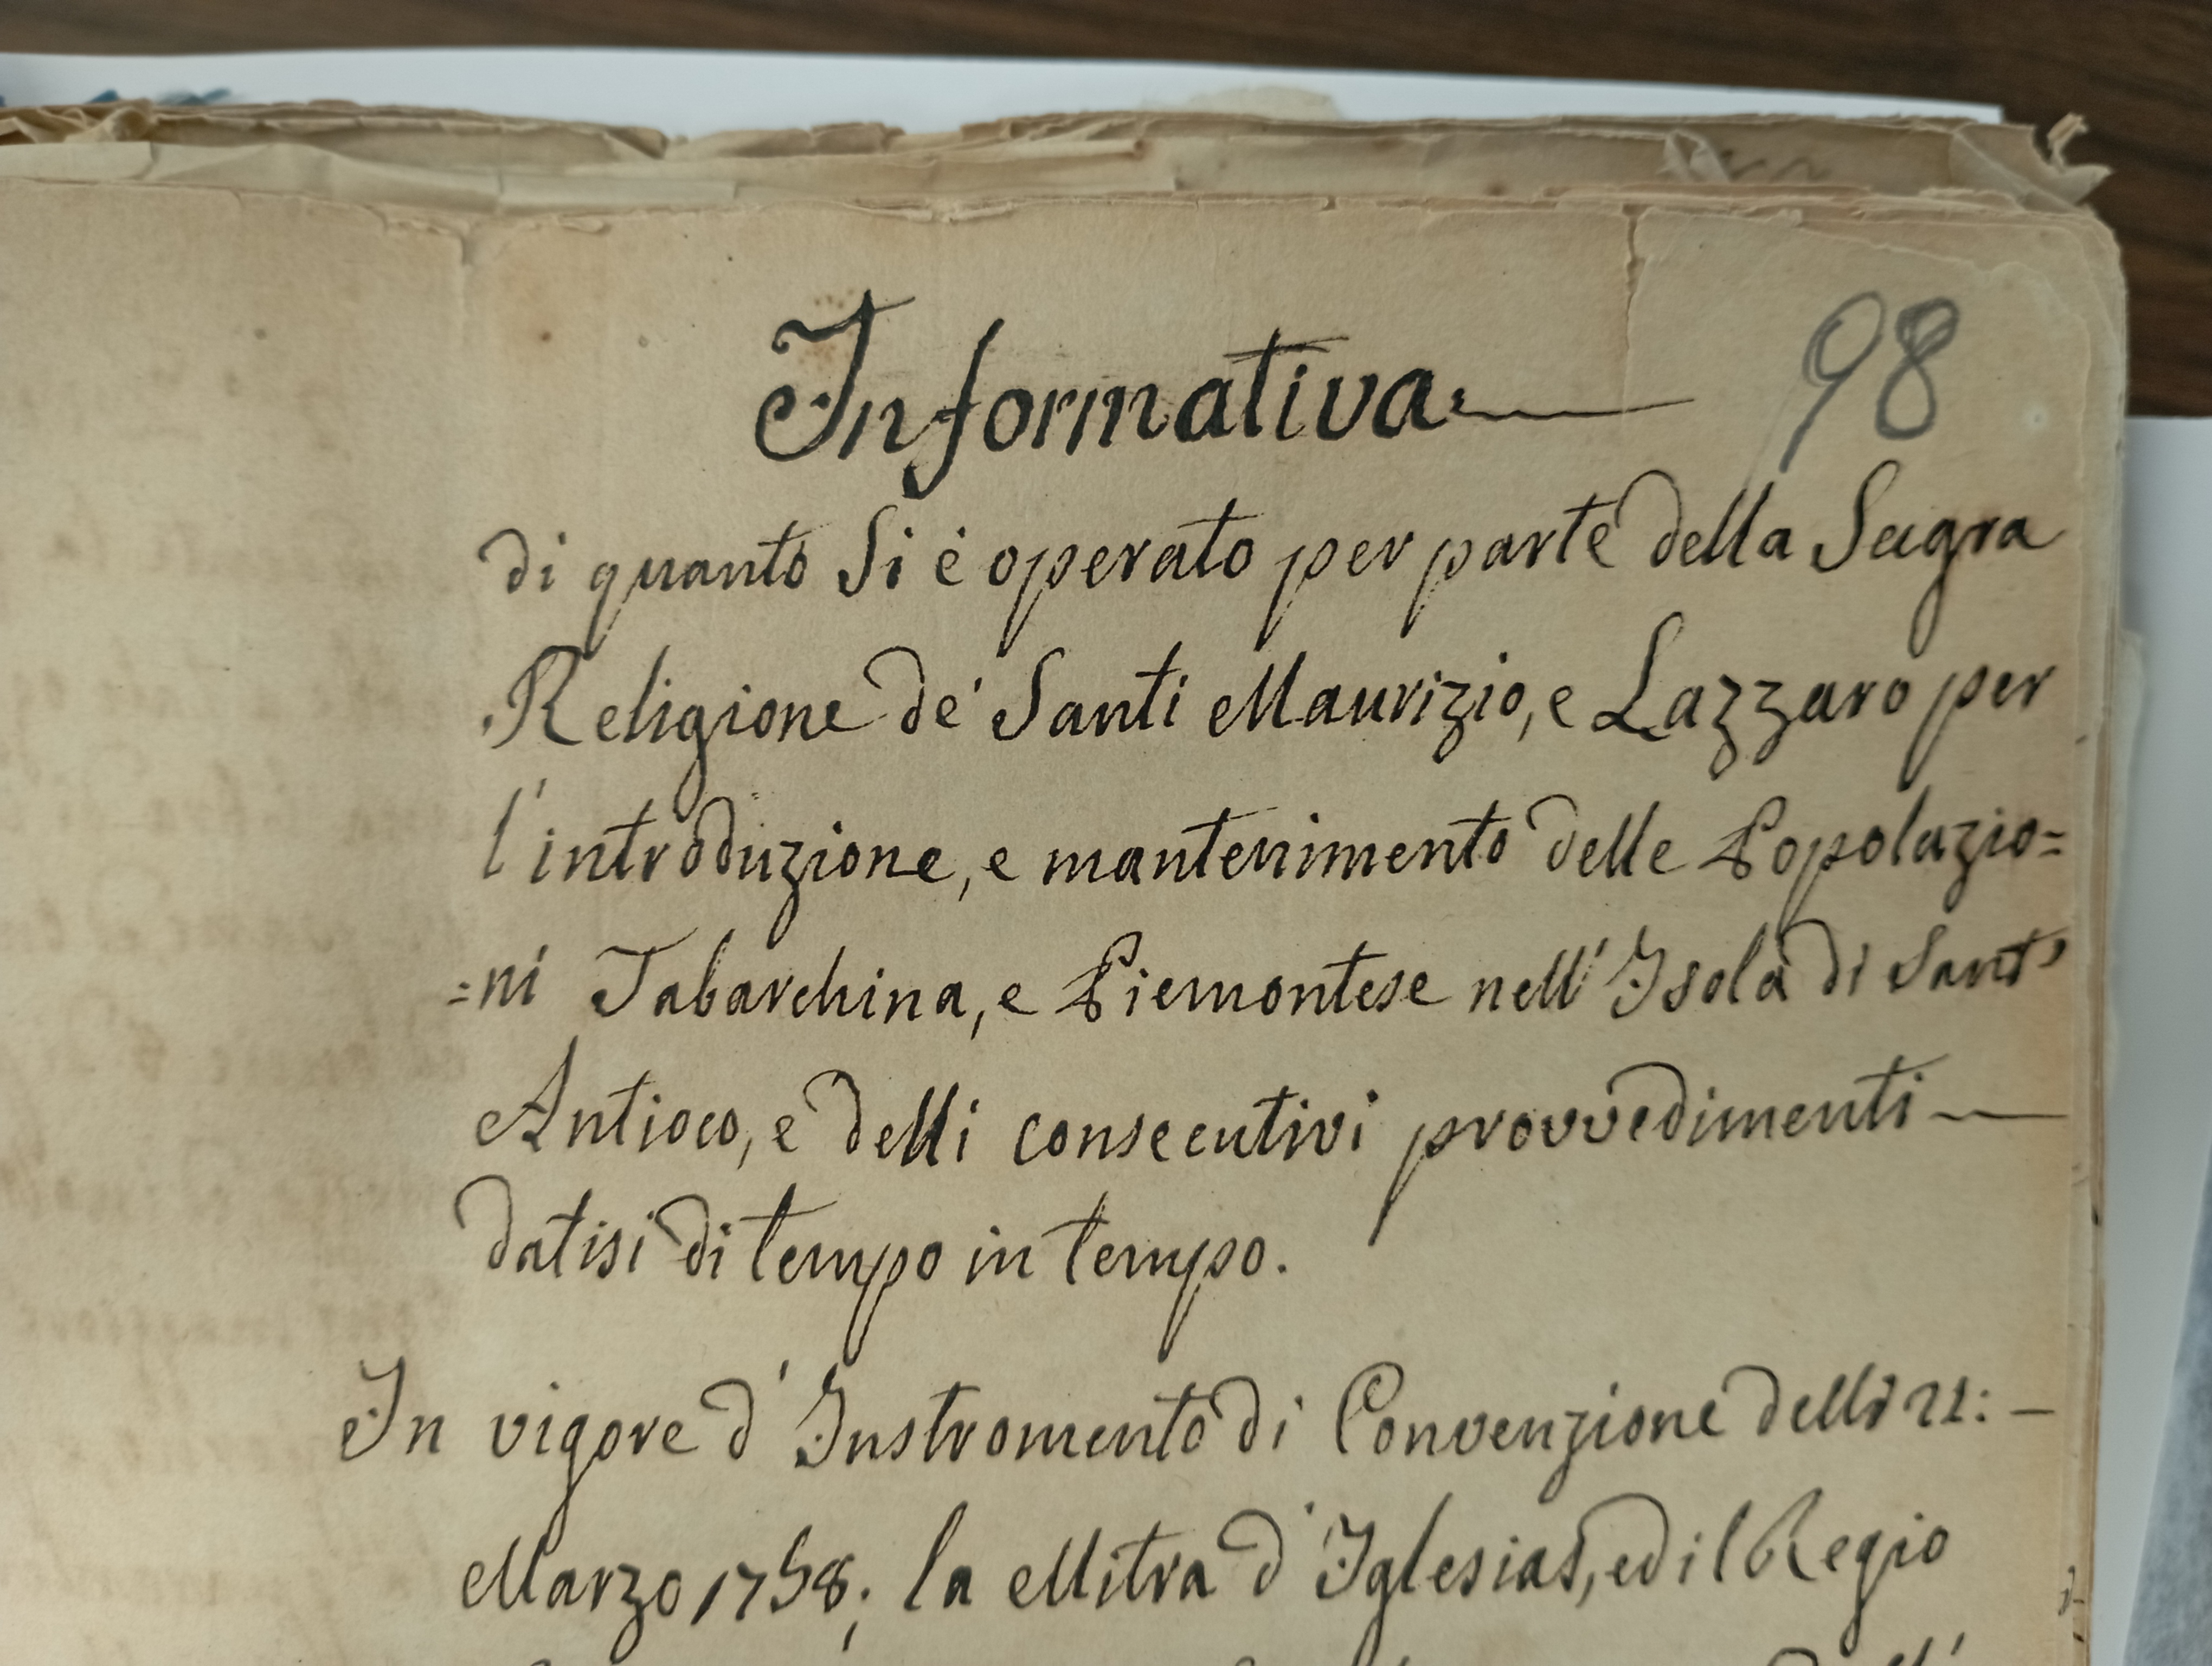 Informativa
98
di quanto si è operato per parte della Sagra
Religione de' Santi Maurizio, e Lazzaro per
l'introduzione, e mantenimento delle Popolazio=
=ni Tabarchina, e Piemontese nell'Isola di Sant'
Antioco, e delli consecutivi provvedimenti
datisi di tempo in tempo.
In vigore d'Instromento di Convenzione delli
Marzo 1758; la Mitra d'Iglesias, ed il Regio